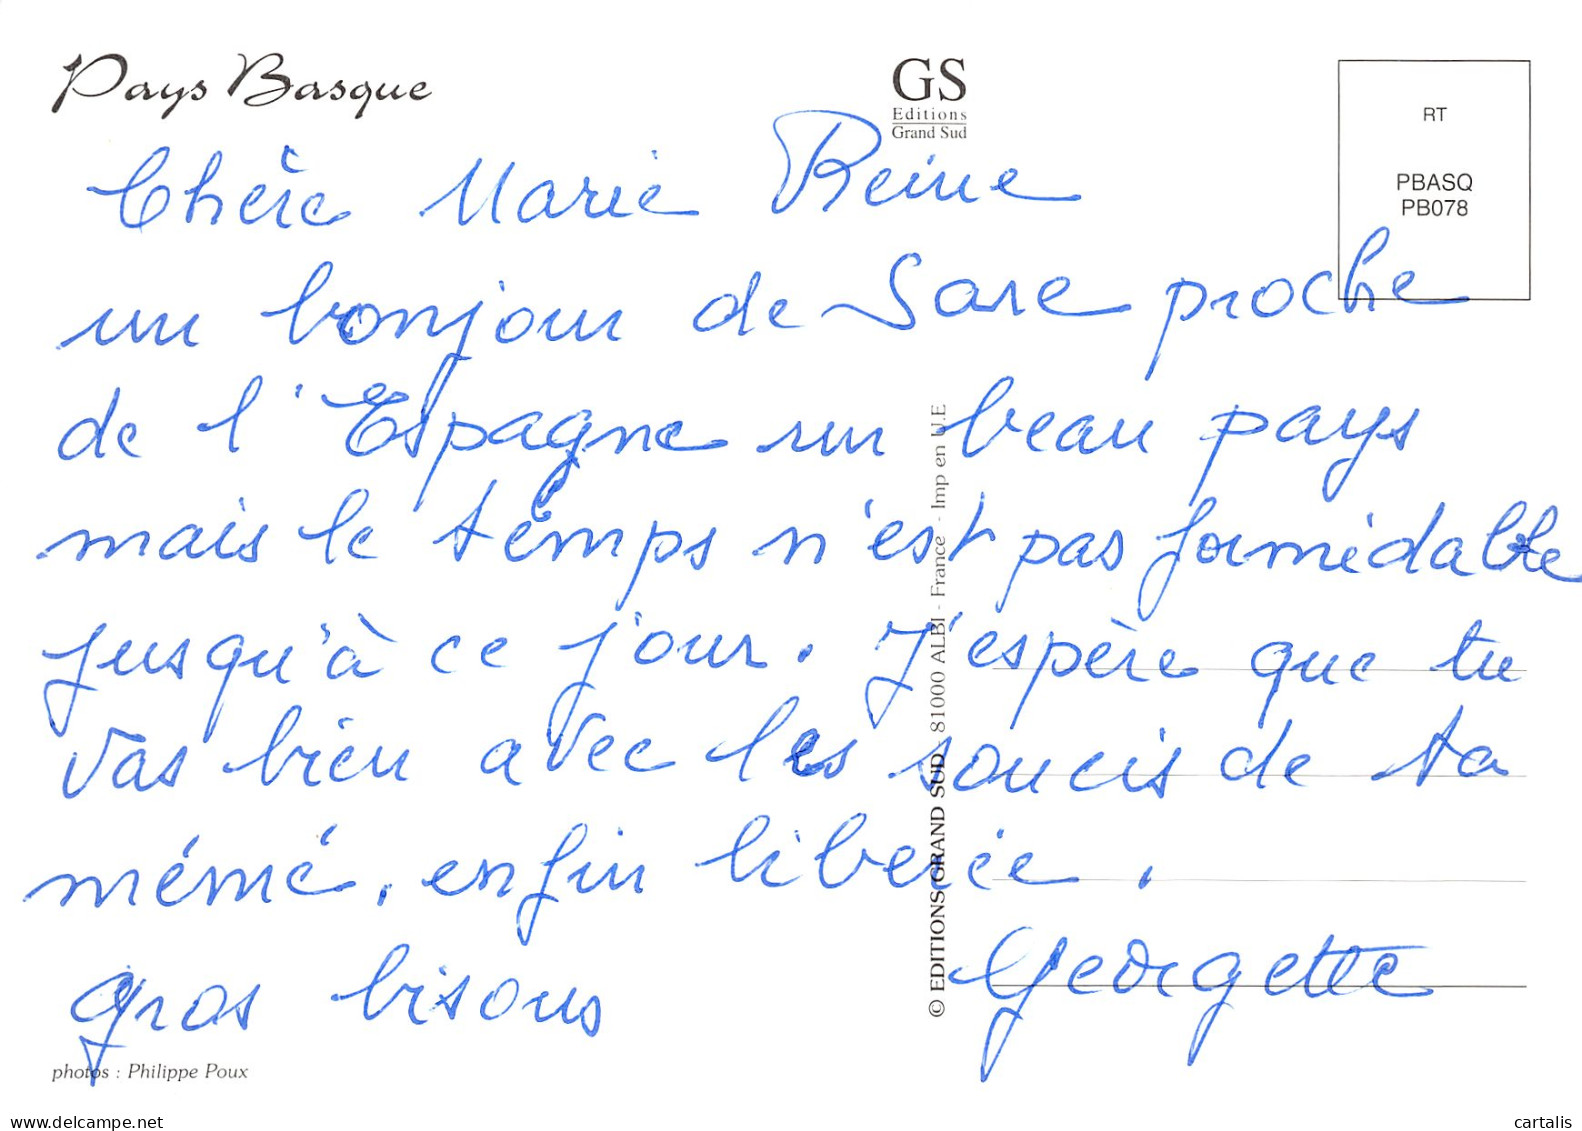 Pays Basque
GS
Editions
Grand Sud
RT
PBASQ
PB078
Chère Marie Reine
un bonjour de Sare proche
de l'Espagne un beau pays
mais le temps n'est pas formidable
jusqu'à ce jour. J'espère que tu
vas bien avec les soucis de ta
mémé. enfin libérée.
gros bisous Georgette
© EDITIONS GRAND SUD - 81000 ALBI - France - Imp en U.E
photos : Philippe Poux
www.delcampe.net
cartalis